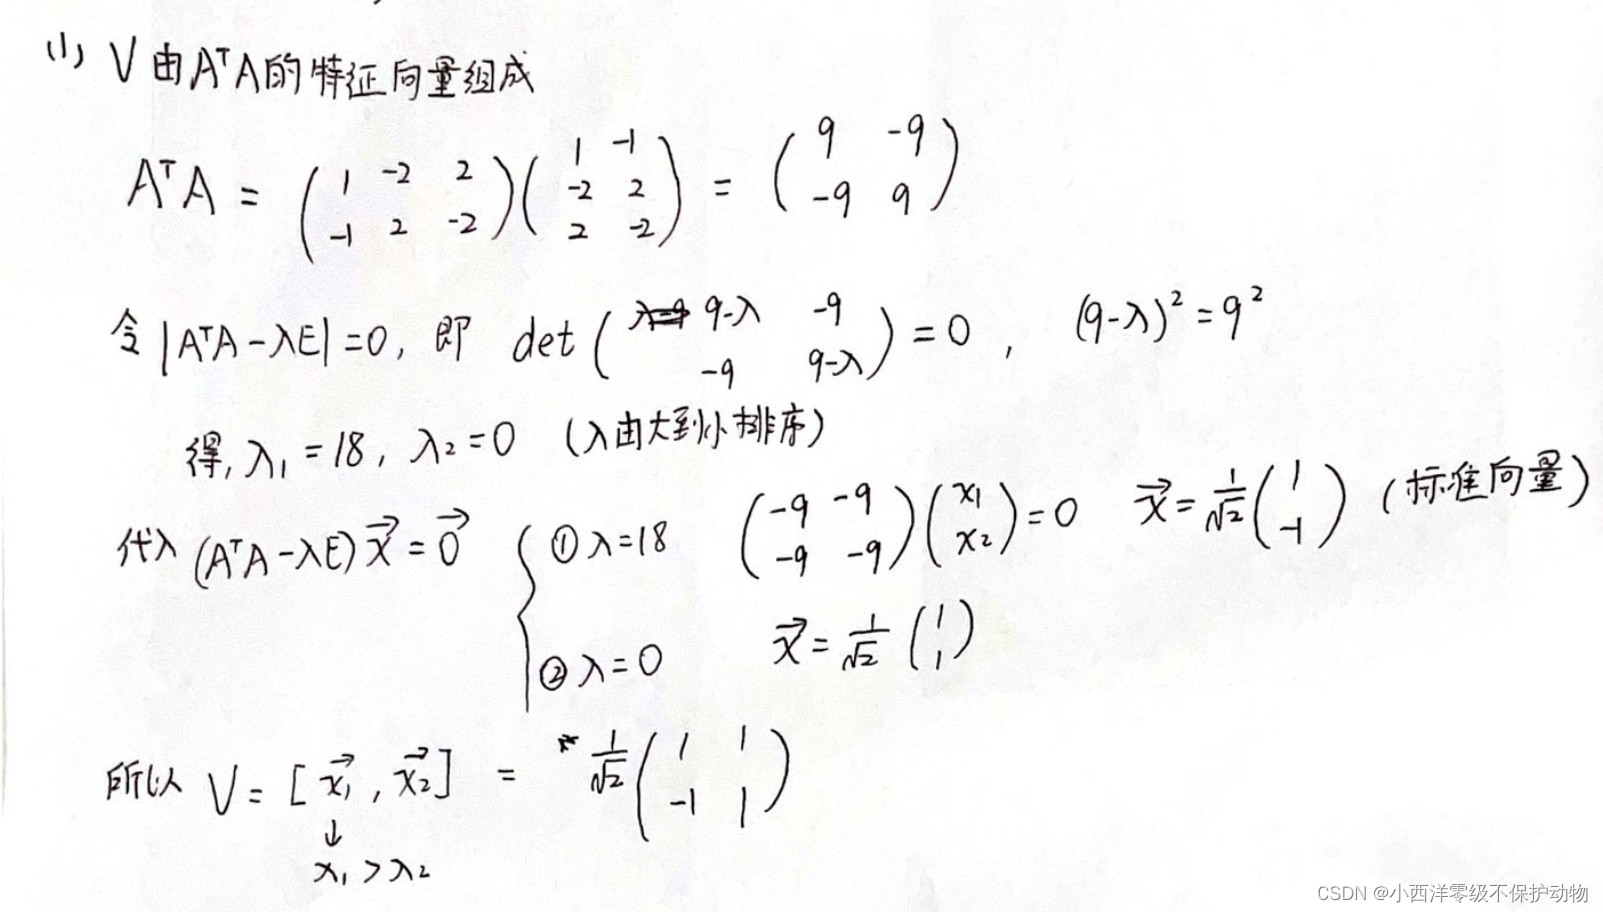 (1) V由AᵀA的特征向量组成
AᵀA = ( 1 -2 2 ; -1 2 -2 )( 1 -1 ; -2 2 ; 2 -2 ) = ( 9 -9 ; -9 9 )
令|AᵀA-λE|=0, 即 det( 9-λ -9 ; -9 9-λ ) = 0 , (9-λ)² = 9²
得, λ₁ = 18, λ₂ = 0 (λ由大到小排序)
代入 (AᵀA-λE)x⃗ = 0⃗ { ① λ=18 ( -9 -9 ; -9 -9 )( x₁ ; x₂ ) = 0 x⃗ = 1/√2 ( 1 ; -1 ) (标准向量)
② λ=0 x⃗ = 1/√2 ( 1 ; 1 )
所以 V = [ x⃗₁ , x⃗₂ ] = 1/√2 ( 1 1 ; -1 1 )
↓
x₁ > λ₂
CSDN @小西洋零级不保护动物